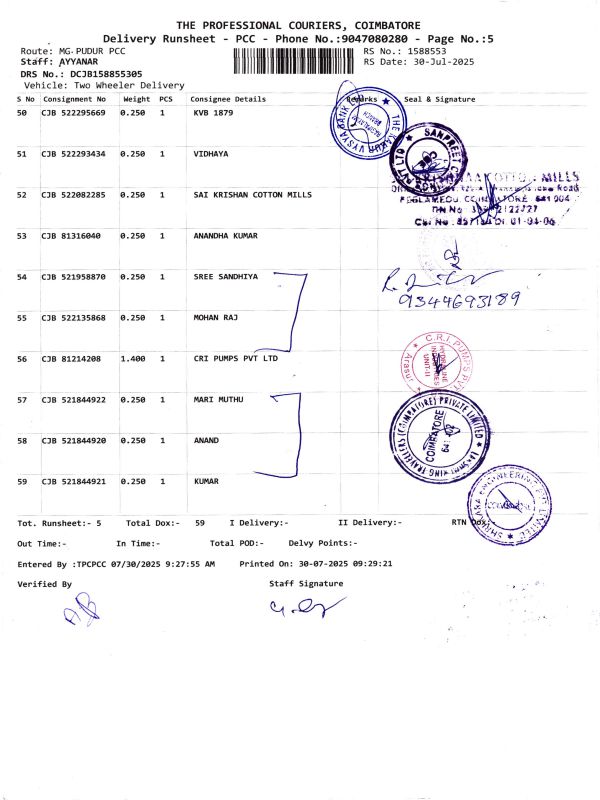 THE PROFESSIONAL COURIERS, COIMBATORE
Delivery Runsheet - PCC - Phone No.:9047080280 - Page No.:5
Route: MG-PUDUR PCC RS No.: 1588553
Staff: AYYANAR RS Date: 30-Jul-2025
DRS No.: DCJB158855305
Vehicle: Two Wheeler Delivery
S No Consignment No Weight PCS Consignee Details Remarks Seal & Signature
50 CJB 522295669 0.250 1 KVB 1879
THE KARUR VYSYA BANK LTD
51 CJB 522293434 0.250 1 VIDHAYA
SANPREET PVT LTD
CBE
52 CJB 522082285 0.250 1 SAI KRISHAN COTTON MILLS
MILLS
Road
PEELAMEDU COIMBATORE 641 004
TIN No
Cst No 01-04-06
53 CJB 81316040 0.250 1 ANANDHA KUMAR
54 CJB 521958870 0.250 1 SREE SANDHIYA
9344693189
55 CJB 522135868 0.250 1 MOHAN RAJ
56 CJB 81214208 1.400 1 CRI PUMPS PVT LTD
C.R.I. PUMPS PVT
UNIT-II
Arasur
57 CJB 521844922 0.250 1 MARI MUTHU
TRAVELLERS (COIMBATORE) PRIVATE LIMITED
COIMBATORE
58 CJB 521844920 0.250 1 ANAND
59 CJB 521844921 0.250 1 KUMAR
ENGINEERING PVT LIMITED
Tot. Runsheet:- 5 Total Dox:- 59 I Delivery:- II Delivery:- RTN Dox:-
Out Time:- In Time:- Total POD:- Delvy Points:-
Entered By :TPCPCC 07/30/2025 9:27:55 AM Printed On: 30-07-2025 09:29:21
Verified By Staff Signature